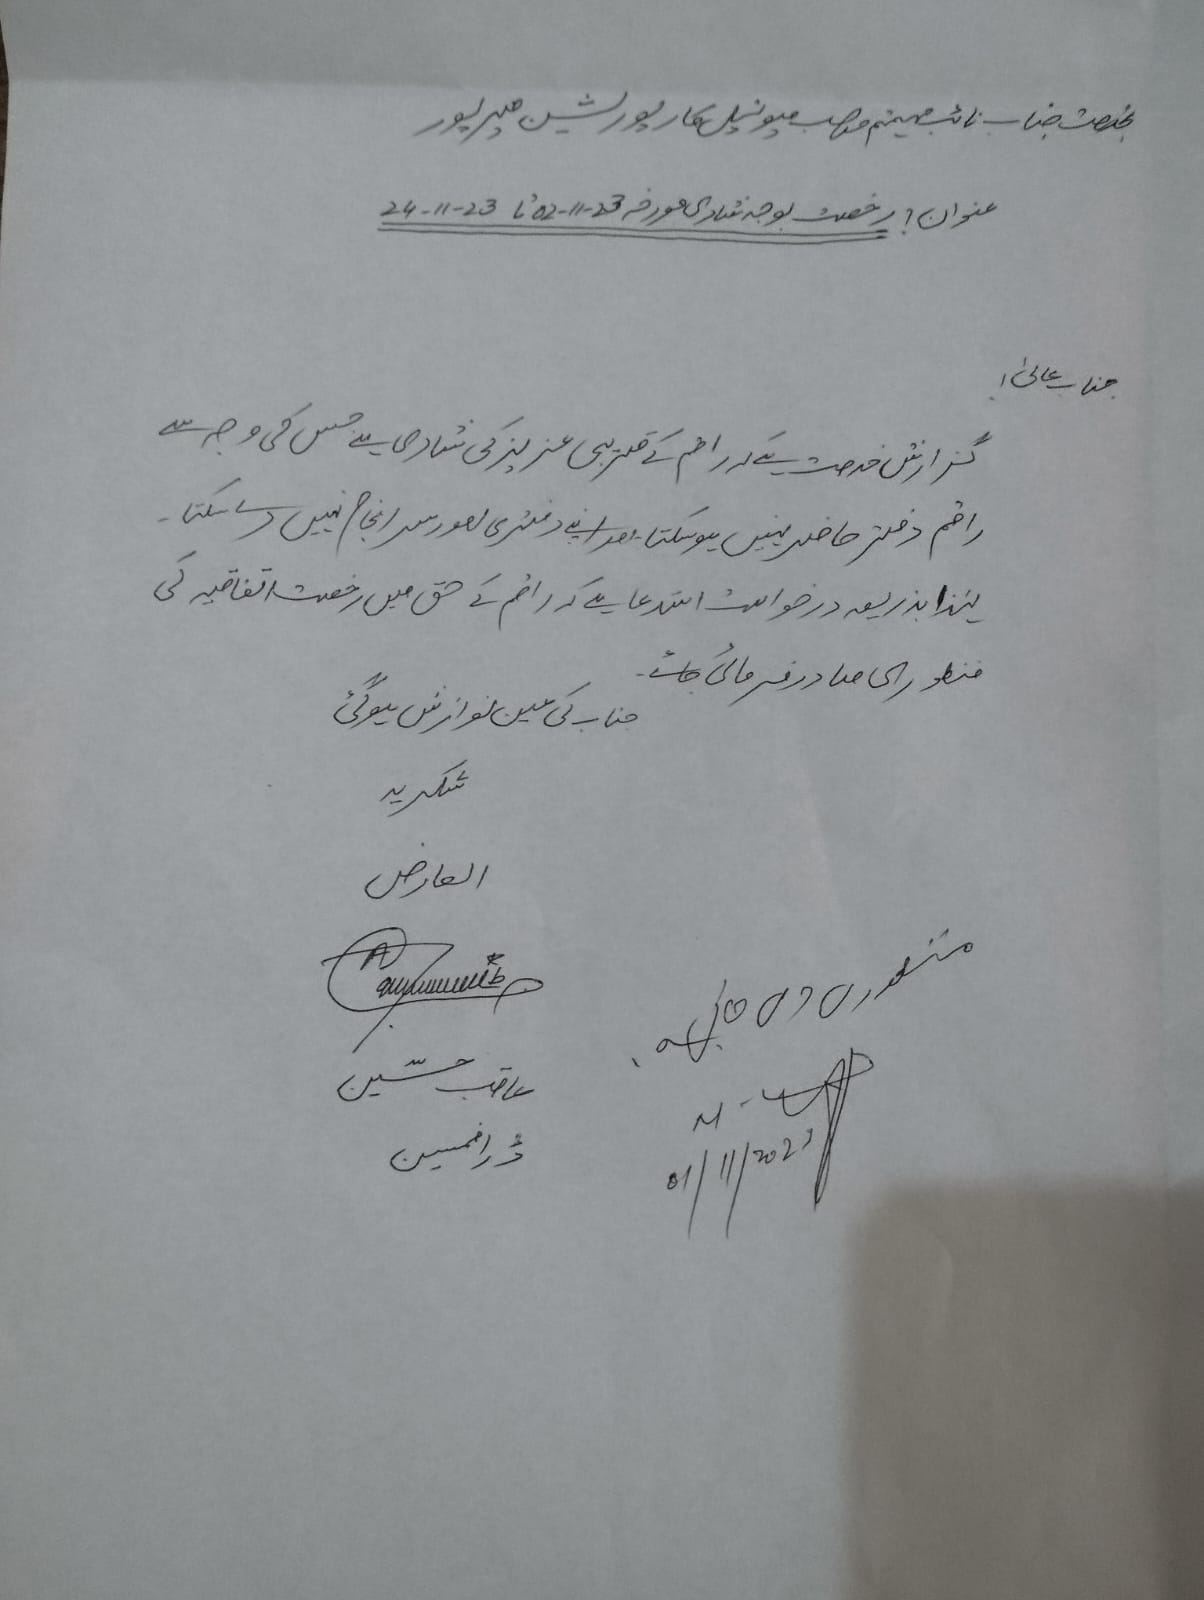 بخدمت جناب نائب مہتمم صاحب میونسپل کارپوریشن میرپور
عنوان! رخصت بوجہ شادی مورخہ 02-11-23 تا 24-11-23
جناب عالی!
گزارش خدمت ہے کہ راقم کے قریبی عزیز کی شادی ہے جس کی وجہ سے
راقم دفتر حاضر نہیں ہو سکتا۔ اور اپنے دفتری امور سر انجام نہیں دے سکتا۔
لہذا بذریعہ درخواست استدعا ہے کہ راقم کے حق میں رخصت اتفاقیہ کی
منظوری صادر فرمائی جائے۔
جناب کی عین نوازش ہوگئی
شکریہ
العارض
عاقب حسین
ڈرافمسین
منظوری دی جاتی ہے۔
01/11/2023